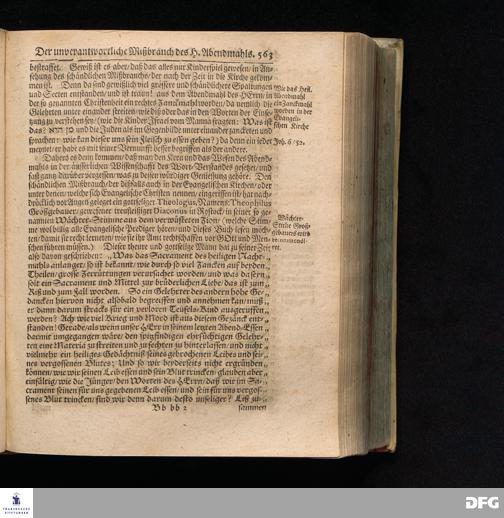 Der unverantwortliche Mißbrauch des H. Abendmahls. 563
bestraffet. Gewiß ist es aber, daß das alles nur Kinderspiel gewesen, in An-
sehung des schändlichen Mißbrauchs, der nach der Zeit in die Kirche gekom-
men ist. Denn da sind gewißlich viel grössere und schändlichere Spaltungen
und Secten entstanden, und ist traun! aus dem Abendmahl des HErrn, in
der so genannten Christenheit ein rechtes Zanckmahl worden, da nemlich die
Gelehrten unter einander streiten, wie diß oder das in den Worten der Einse-
tzung zu verstehen sey, (wie die Kinder Israel vom Manna fragten: Was ist
das? מן הוא und die Juden als im Gegenbilde unter einander zanckten und
sprachen: wie kan dieser uns sein Fleisch zu essen geben?) da denn ein jeder
meynet, er habe es mit seiner Vernunfft besser begriffen als der andere.
Dahero ist denn kommen, daß man den Kern und das Wesen des Abend-
mahls in der äusserlichen Wissenschafft des Wort-Verstandes gesetzt, und
fast gantz darüber vergessen, was zu dessen würdiger Geniessung gehöre. Den
schändlichen Mißbrauch, der deßfalls auch in der Evangelischen Kirchen, oder
unter denen, welche sich Evangelische Christen nennen, eingerissen ist, hat nach-
drücklich vor Augen geleget ein gottseliger Theologus, Nament: Theophilus
Großgebauer, gewesener treufleißiger Diaconus in Rostock, in seiner so ge-
nannten Wächter-Stimme aus dem verwüsteten Zion, (welche Stim-
me wol billig alle Evangelische Prediger hören, und dieses Buch lesen möch-
ten, damit sie recht lerneten, wie sie ihr Amt rechtschaffen vor GOtt und Men-
schen führen müssen.) Dieser theure und gottselige Mann hat zu seiner Zeit
also davon geschrieben: „Was das Sacrament des heiligen Nacht-
mahls anlanget, so ist bekannt, wie durch so viel Zancken auf beyden „
Theilen, grosse Zerrüttungen verursachet worden, und was da seyn „
solt ein Sacrament und Mittel zur brüderlichen Liebe, das ist zum „
Riß und zum Fall worden. So ein Gelehrter des andern hohe Ge- „
dancken hiervon nicht alsobald begreiffen und annehmen kan, muß „
er dann darum stracks für ein verloren Teufels-Kind ausgeruffen „
werden? Ach wie viel Krieg und Mord ist aus diesem Gezänck ent- „
standen! Gerade, als wenn unser HErr in seinem letzten Abend-Essen „
darmit umgegangen wäre, den spitzfindigen ehrsüchtigen Gelehr- „
ten eine Materia zu streiten und zu fechten zu hinterlassen, und nicht „
vielmehr ein heiliges Gedächtniß seines gebrochenen Leibes und sei- „
nes vergossenen Blutes: Und so wir beyderseits nicht ergründen „
können, wie wir seinen Leib essen und sein Blut trincken, glauben aber „
einfältig, wie die Jünger, den Worten des HErrn, daß wir im Sa- „
crament seinen für uns gegebenen Leib essen, und sein für uns vergos- „
senes Blut trincken, sind wir denn darum desto unseliger? Laß zu- „
Bb bb 2 sammen
Wie das Heil.
Abendmahl
ein Zanckmahl
worden in der
Evangeli-
schen Kirche
Joh. 6/52.
Wächter-
Stimme Groß-
gebauers wird
recommendi-
ret.
FRANCKESCHE
STIFTUNGEN
DFG